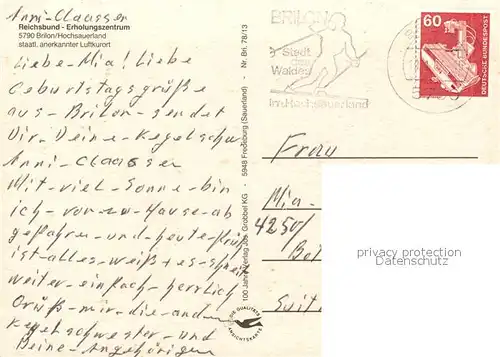 Anni-Claassen
Reichsbund - Erholungszentrum
5790 Brilon/Hochsauerland
staatl. anerkannter Luftkurort
Liebe-Mia! Liebe
Geburtstagsgrüße
aus-Brilon-sendet
Dir-Deine-Kegelschw
Anni-Claassen
Mit-viel-Sonne-bin
ich-von-zu-Hause-ab
gefahren-und-heute-früh
ist-alles-weiß+es-schneit
weiter-einfach-herrlich
Grüß-mir-die-andern
Kegelschwester-und
Deine-Angehörigen
100 Jahre Verlag Jos. Grobbel KG - 5948 Fredeburg (Sauerland) - Nr. Bri. 78/13
DIE QUALITÄTS
ANSICHTSKARTE
BRILON
Stadt
des
Waldes
im Hochsauerland
60
DEUTSCHE BUNDESPOST
Frau
Mia-
4250
Bot
privacy protection
Datenschutz